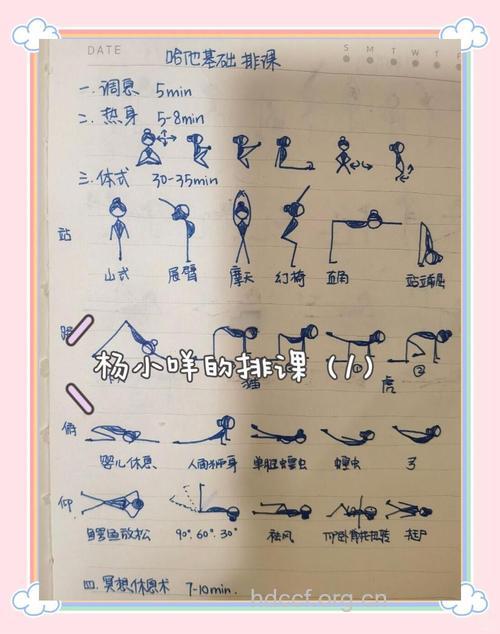 DATE
S M T W T F
哈他基础 排课
一.调息 5min
二.热身 5-8min
三.体式 30-35min
站
山式 展臂 摩天 幻椅 直角 站立前屈
杨小咩的排课（1）
猫 ① ② 虎
俯
婴儿休息 人面狮身 单腿蝗虫 蝗虫 弓
仰
鳄鱼放松 90°.60°.30° 祛风 摊尸
四.冥想休息术 7-10min.
hdccf.org.cn